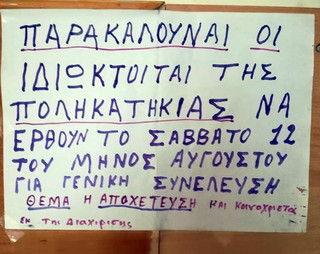 ΠΑΡΑΚΑΛΟΥΝΑΙ ΟΙ
ΙΔΙΩΚΤΟΙΤΑΙ ΤΗΣ
ΠΟΛΗΚΑΤΗΚΙΑΣ ΝΑ
ΕΡΘΟΥΝ ΤΟ ΣΑΒΒΑΤΟ 12
ΤΟΥ ΜΗΝΟΣ ΑΥΓΟΥΣΤΟΥ
ΓΙΑ ΓΕΝΙΚΗ ΣΥΝΕΛΕΥΣΗ
ΘΕΜΑ Η ΑΠΟΧΕΤΕΥΣΗ και Κοινοχρηστα
Εκ της Διαχιρισης